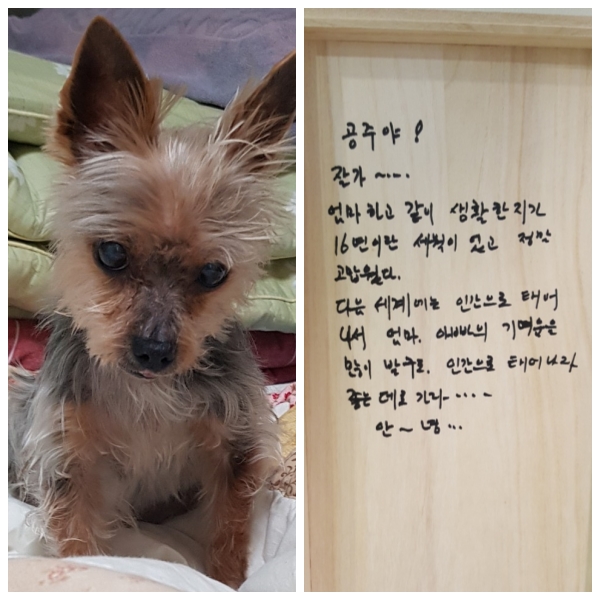 공주야!
잘가~...
엄마하고 같이 생활한지가
16년이란 세월이 였고 정말
고맙웠다.
다음 세계에는 인간으로 태어
나서 엄마. 아빠의
모두 인간으로 태어나라
좋은 데로 가라-....-
안~녕...